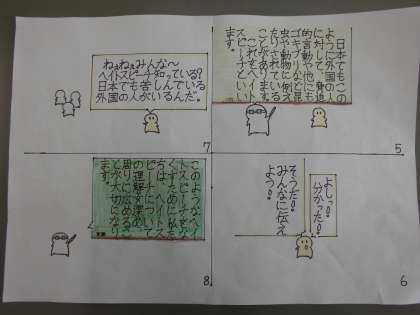 日本でもこの
ように外国の人
に対して、脅迫
的言動や他にも
ゴキブリなど昆
虫や動物に例え
たりされている
ことがあります。
これをヘイト
スピーチといい
ます。
5
よしっ!!
分かった!!
そうだ!!
みんなに伝え
よう!
6
ねぇねぇみんな～
ヘイトスピーチ知っている?
日本でも苦しんでいる
外国の人がいるんだ。
7
このようなヘイ
トスピーチをな
くすために私た
ちは、ヘイトス
ピーチについて
の理解を深め、
周りに広めるこ
とが大切になり
ます。
8